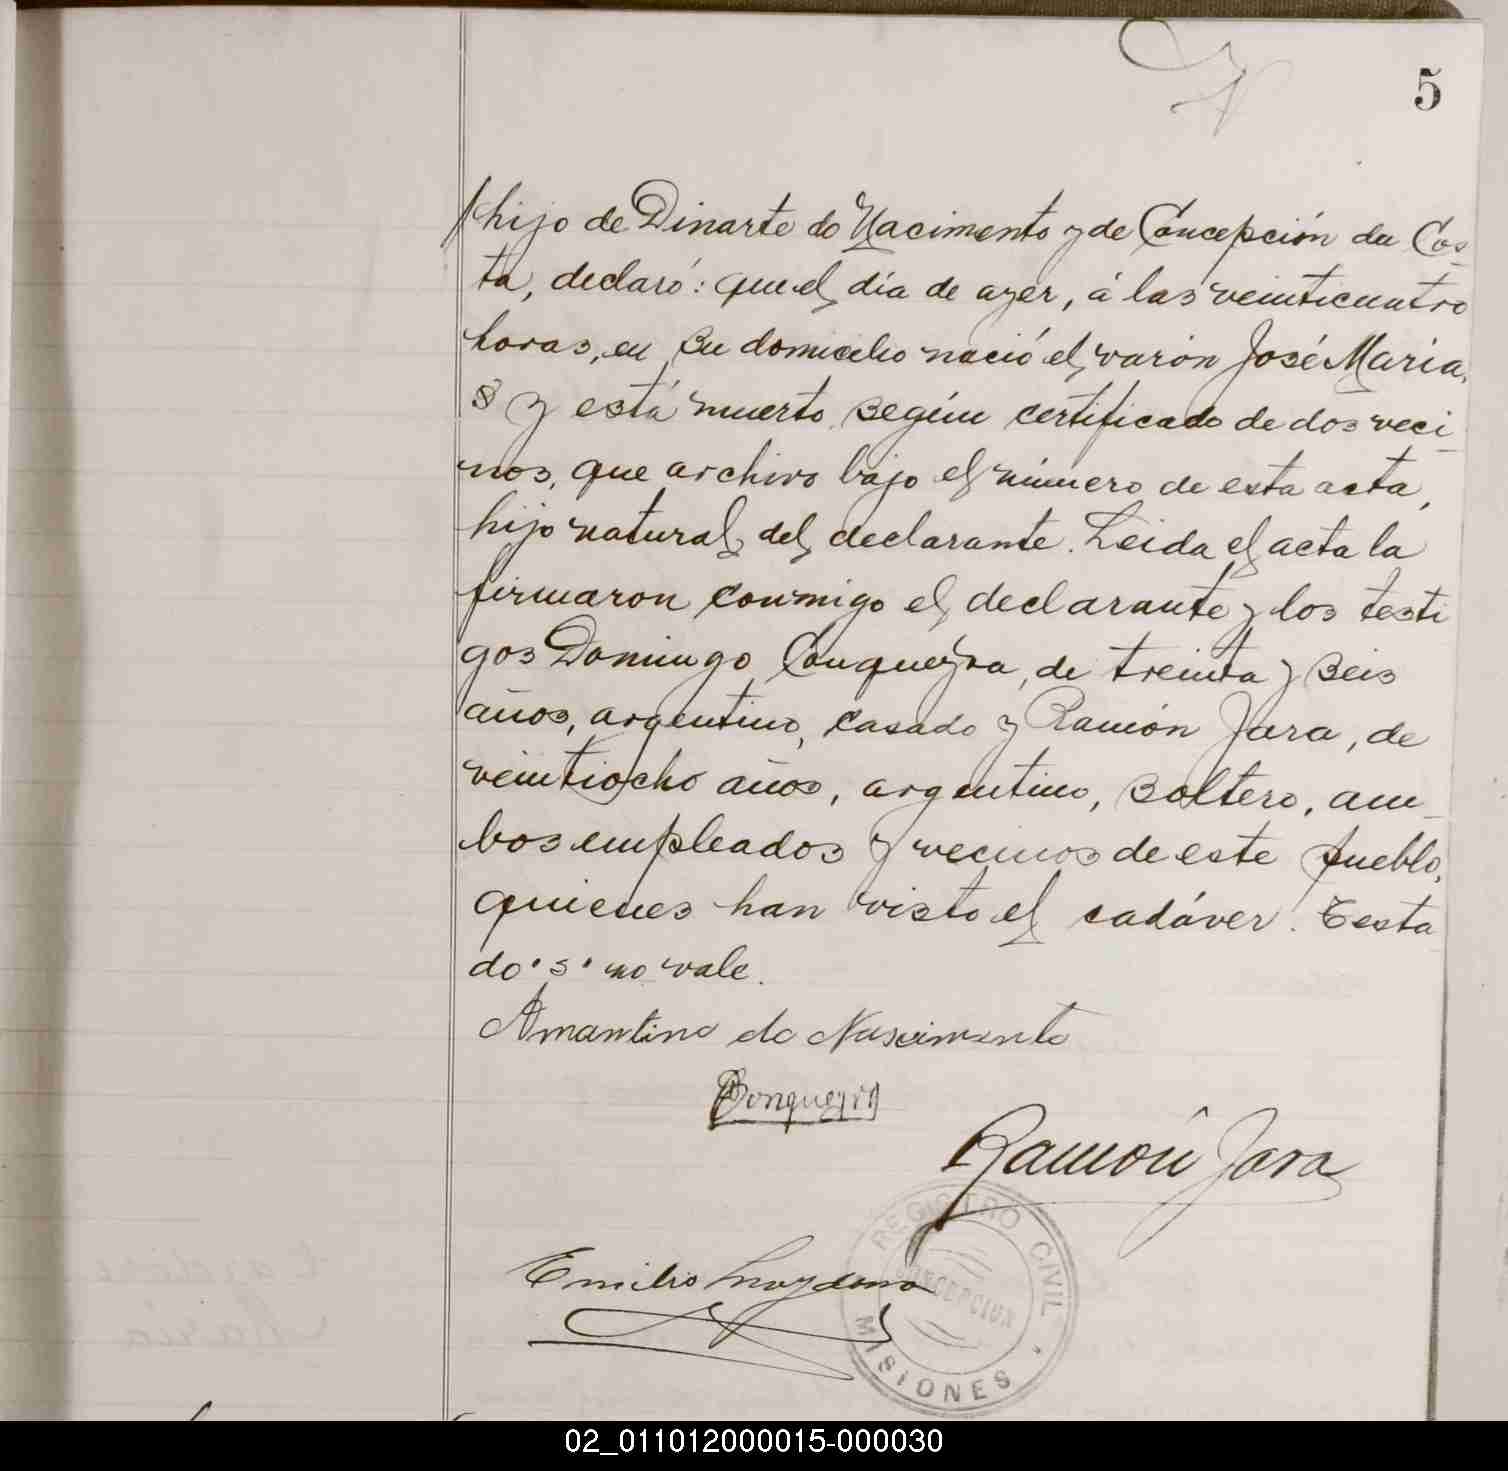 5
hijo de Dinarte do Nacimento y de Concepción da Cos
ta, declaró: que el día de ayer, á las veinticuatro
horas, en su domicilio nació el varón José María,
s y está muerto según certificado de dos veci
nos, que archivo bajo el número de esta acta,
hijo natural del declarante. Leida el acta la
firmaron conmigo el declarante y los testi
gos Domingo Conqueyra, de treinta y seis
años, argentino, casado y Ramón Jara, de
veintiocho años, argentino, soltero, am
bos empleados y vecinos de este pueblo,
quienes han visto el cadáver. Testa
do "s" no vale.
Amantino do Nascimento
Conqueyra
Ramón Jara
Emilio
REGISTRO CIVIL
CONCEPCION
MISIONES
02_011012000015-000030